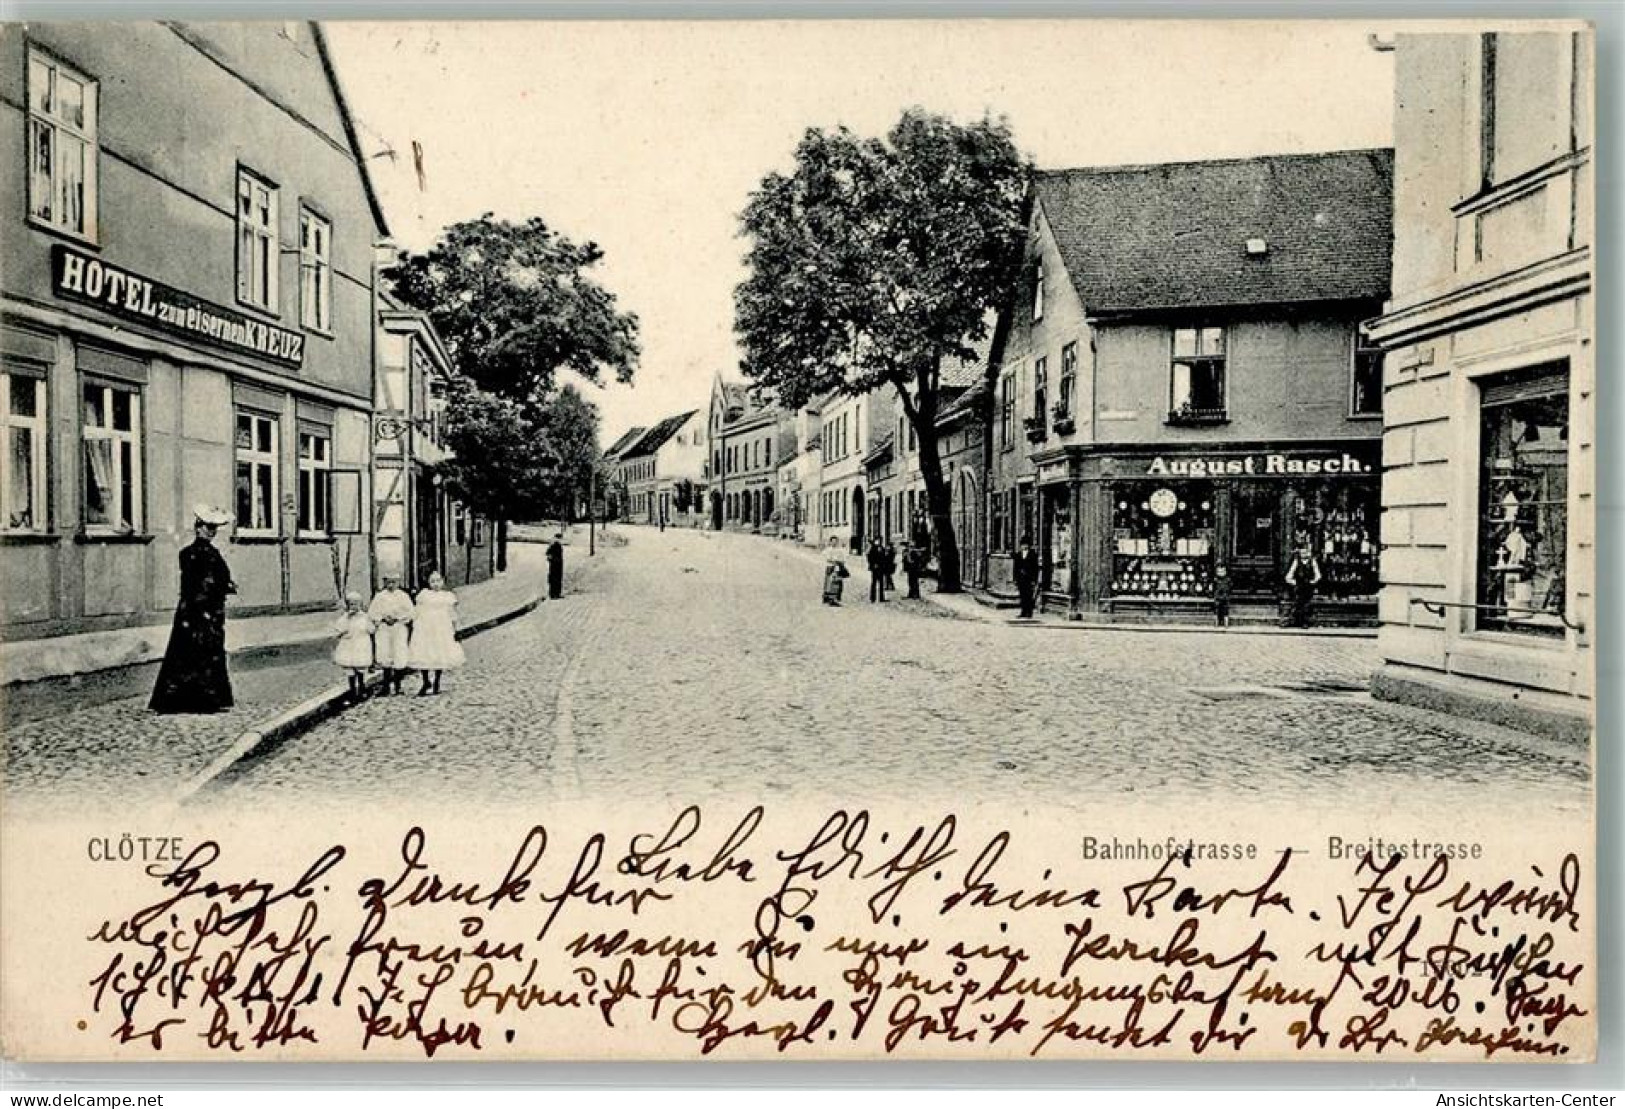 HOTEL zum eisernen KREUZ
August Rasch.
CLÖTZE
Bahnhofstrasse — Breitestrasse
Liebe Edith.
Herzl. Dank für deine Karte. Ich würde
mich sehr freuen, wenn du mir ein Packet mit Kirschen
schicktest. Ich brauche für den 20 M. Sage
es bitte Papa. Herzl. Grüße sendet dir
delcampe.net
Ansichtskarten-Center